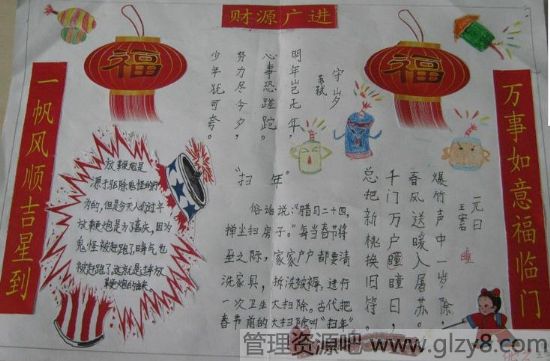 财源广进
一帆风顺吉星到
万事如意福临门
福
福
守岁
苏轼
明年岂无年，
心事恐蹉跎。
努力尽今夕，
少年犹可夸。
放鞭炮是
源于驱除鬼怪的
方向，但是今天人们过年
放鞭炮是为了喜庆，因为
鬼怪被赶跑了晦气也
被赶跑了，这就是过年放
鞭炮的由来
“扫年”
俗话说：“腊月二十四，
掸尘扫房子。”每当春节将
至之际，家家户户都要清
洗家具，拆洗被褥，进行
一次卫生大扫除。古代把
春节前的大扫除叫“扫年”
元日
王安石
爆竹声中一岁除，
春风送暖入屠苏。
千门万户瞳瞳日，
总把新桃换旧符。
管理资源吧 www.glzy8.com